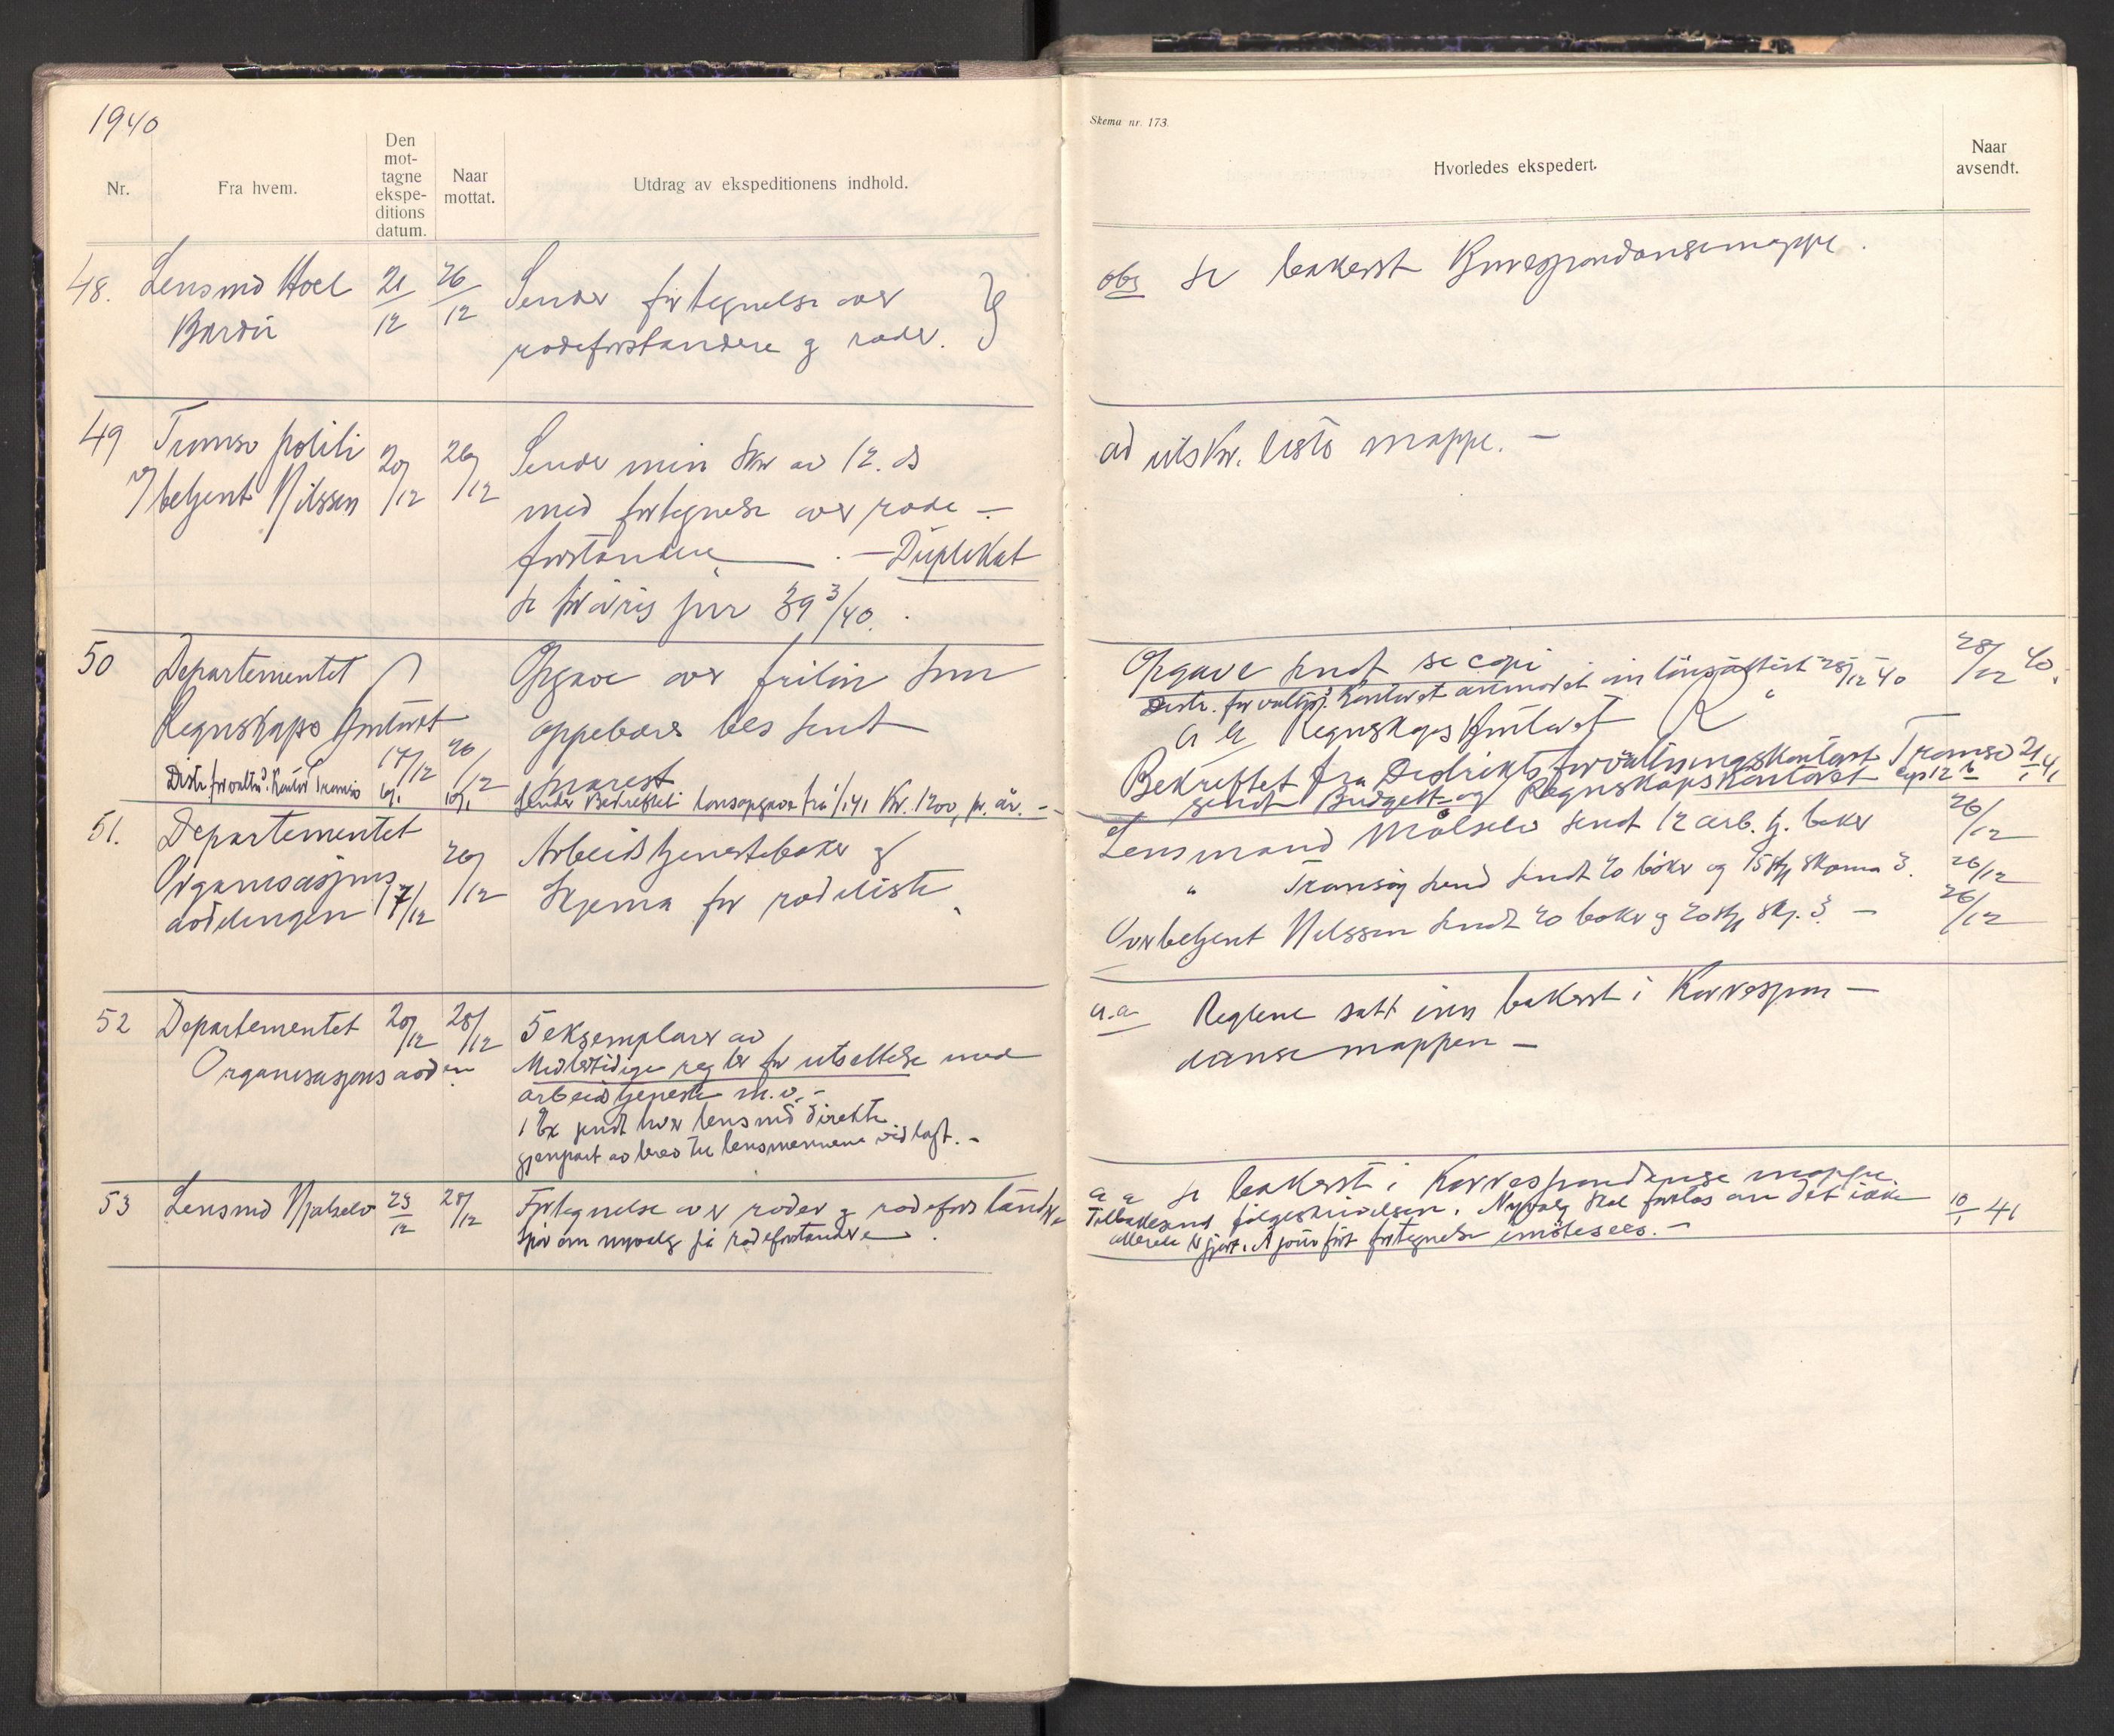 1940
Nr.
Fra hvem.
Den
mot-
tagne
ekspe-
ditions
datum.
Naar
mottat.
Utdrag av ekspeditionens indhold.
48. Lensmd Hoel 21 26 Sender fortegnelse over
Bardu 12 12 rodeforstandere og roder.
49 Tromsø politi 20/12 26/12 Sender min skr av 12. ds
v/ betjent Nilssen med fortegnelse over rode-
forstandere . - Duplikat
se forøvrig jnr 39 3/40.
50 Departementet Opgave over fritin som
Regnskaps kontoret 17/12 26/12 oppebæres bes sendt
Distr. forvaltn. Kontor Tromsø snarest
Sender Bekreftet lønsopgave fra 1/1 41 Kr. 1200, pr. år. -
51. Departementet 26/12 Arbeidstjenestebøker og
Organisasjons
avdelingen 17/12 Skjema for rodeliste
52 Departementet 20/12 28/12 5 eksemplarer av
Organisasjons avd. Midlertidige regler for utsettelse med
arbeidstjeneste m.v. -
1 Ex sendt hver lensmd direkte
gjenpart av brev til lensmennene vedlagt. -
53 Lensmd Målselv 23/12 28/12 Fortegnelse over roder og rodeforstandere
Spør om nyvalg på rodeforstandere .
Skema nr. 173.
Hvorledes ekspedert.
Naar
avsendt.
obs se bakerst Korrespondansemappe.
ad utskr. liste mappe. -
Opgave sendt se copi 28/12 40.
Distr. forvaltn. Kontoret anmodet om lønsattest 28/12 40
Regnskaps kontoret
Bekreftet fra Distrikts forvaltningskontoret Tromsø 21/1 41
sendt Budgett- og Regnskapskontoret
Lensmand Målselv sendt 12 arb. tj. bøker 26/12
" Tranøy send sendt 20 bøker og 15 stk skema 3. 26/12
Overbetjent Nilssen sendt 20 bøker og 20 stk skj. 3 - 26/12
a.a Reglene satt inn bakerst i Korrespon-
dansemappen -
a a se bakerst i Korrespondanse mappe.
Tilbakesend følgeskrivelsen. Nyvalg skal foretas om det ikke 10/1 41
allerede er gjort. A jour ført fortegnelse imøtesees. -